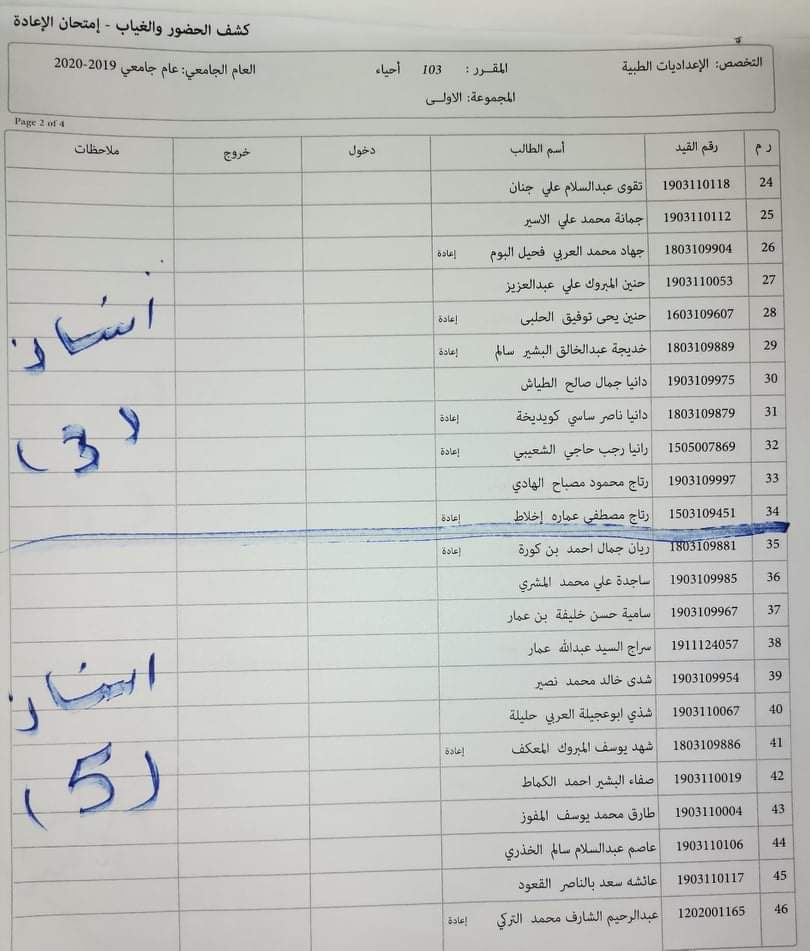 كشف الحضور والغياب - إمتحان الإعادة
التخصص: الإعداديات الطبية المقـــرر : 103 أحياء العام الجامعي: عام جامعي 2019-2020
المجموعة: الاولــى
Page 2 of 4
ر م رقم القيد أسم الطالب دخول خروج ملاحظات
24 1903110118 تقوى عبدالسلام علي جنان
25 1903110112 جمانة محمد علي الاسير
26 1803109904 جهاد محمد العربي فحيل البوم إعادة
27 1903110053 حنين المبروك علي عبدالعزيز
28 1603109607 حنين يحى توفيق الحلبى إعادة
29 1803109889 خديجة عبدالخالق البشير سالم إعادة
30 1903109975 دانيا جمال صالح الطياش
31 1803109879 دانيا ناصر ساسي كويديخة إعادة
32 1505007869 رانيا رجب حاجي الشعيبي إعادة
33 1903109997 رتاج محمود مصباح الهادي
34 1503109451 رتاج مصطفي عماره إخلاط إعادة
35 1803109881 ريان جمال احمد بن كورة إعادة
36 1903109985 ساجدة علي محمد المشري
37 1903109967 سامية حسن خليفة بن عمار
38 1911124057 سراج السيد عبدالله عمار
39 1903109954 شدى خالد محمد نصير
40 1903110067 شذي ابوعجيلة العربي حليلة
41 1803109886 شهد يوسف المبروك المعكف إعادة
42 1903110019 صفاء البشير احمد الكماط
43 1903110004 طارق محمد يوسف المفوز
44 1903110106 عاصم عبدالسلام سالم الخذري
45 1903110117 عائشه سعد بالناصر القعود
46 1202001165 عبدالرحيم الشارف محمد التركي إعادة
(3)
(5)